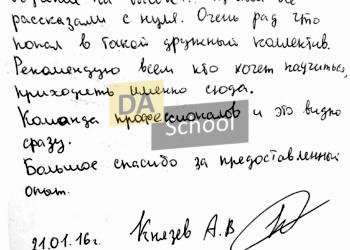 рассказали с нуля. Очень рад что
попал в такой дружный коллектив.
Рекомендую всем кто хочет научиться,
приходить именно сюда.
DA
School
Команда профессионалов и это видно
сразу.
Большое спасибо за предоставленный
опыт.
21.01.16г. Князев А.В